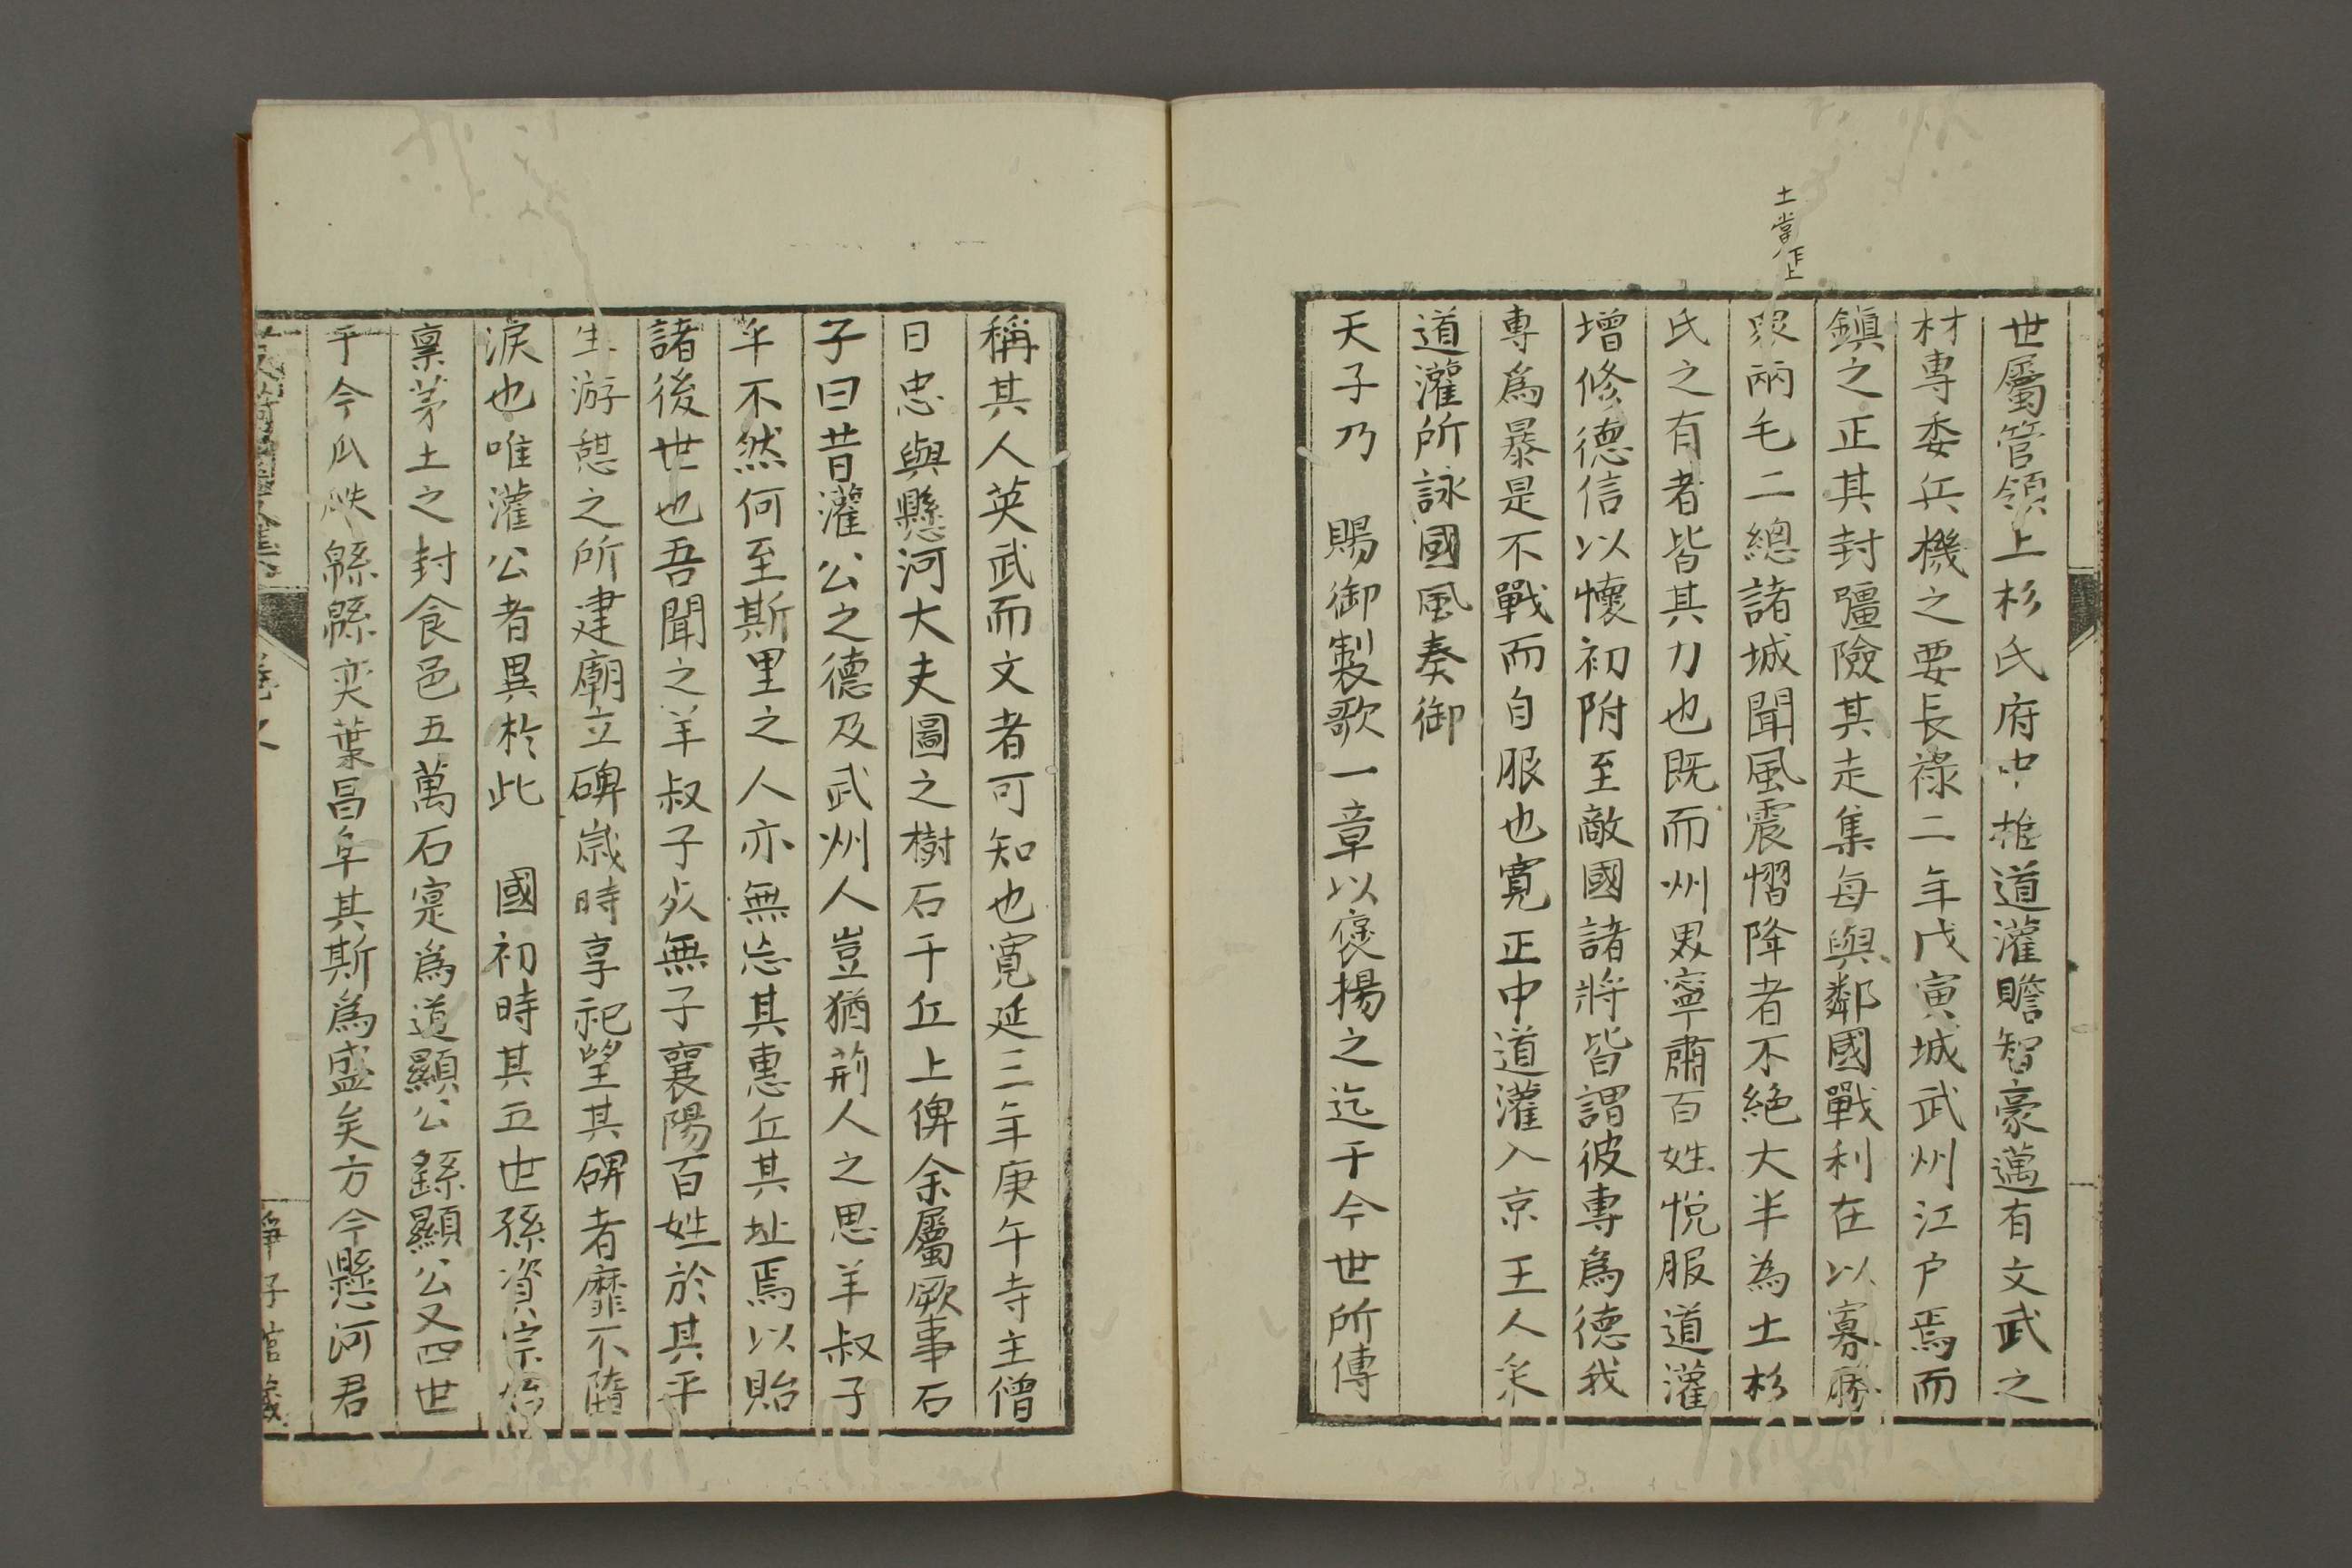 土當作上
世屬管領上杉氏府中推道灌贍智豪邁有文武之
材專委兵機之要長祿二年戊寅城武州江户焉而
鎮之正其封疆險其走集每與鄰國戰利在以寡勝
衆兩毛二總諸城聞風震慴降者不絕大半為土杉
氏之有者皆其力也既而州里寧肅百姓悅服道灌
增修德信以懷初附至敵國諸將皆謂彼專爲德我
專爲暴是不戰而自服也寬正中道灌入京王人采
道灌所詠國風奏御
天子乃 賜御製歌一章以褒揚之迄于今世所傳
稱其人英武而文者可知也寬延三年庚午寺主僧
日忠與懸河大夫圖之樹石于丘上俾余屬厥事石
子曰昔灌公之德及武州人豈猶荊人之思羊叔子
乎不然何至斯里之人亦無忘其惠丘其址焉以貽
諸後世也吾聞之羊叔子歿無子襄陽百姓於其平
生游憩之所建廟立碑歲時享祀望其碑者靡不墮
淚也唯灌公者異於此 國初時其五世孫資宗
稟茅土之封食邑五萬石寔爲道顯公繇顯公又四世
于今瓜瓞緜緜奕葉昌阜其斯爲盛矣方今懸河君